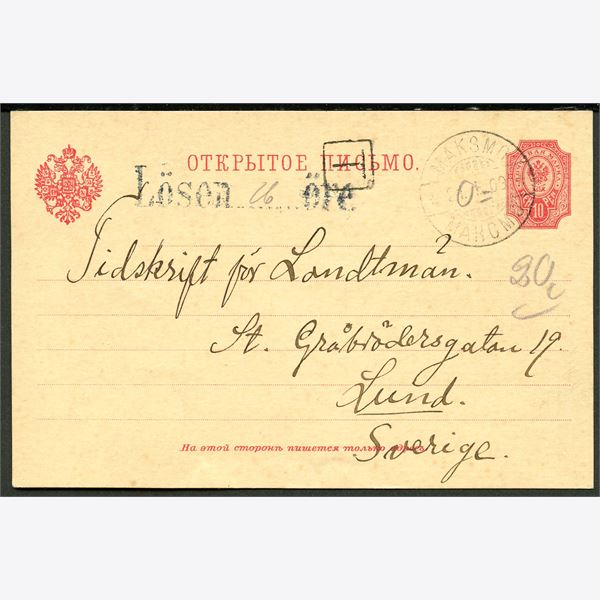 ОТКРЫТОЕ ПИСЬМО.
Lösen 16 öre
T
MAKSMO
МАКСМО
10
Tidskrift för Landtmän.
St. Gråbrödersgatan 19.
Lund.
Sverige.
20
На этой сторонѣ пишется только адресъ.